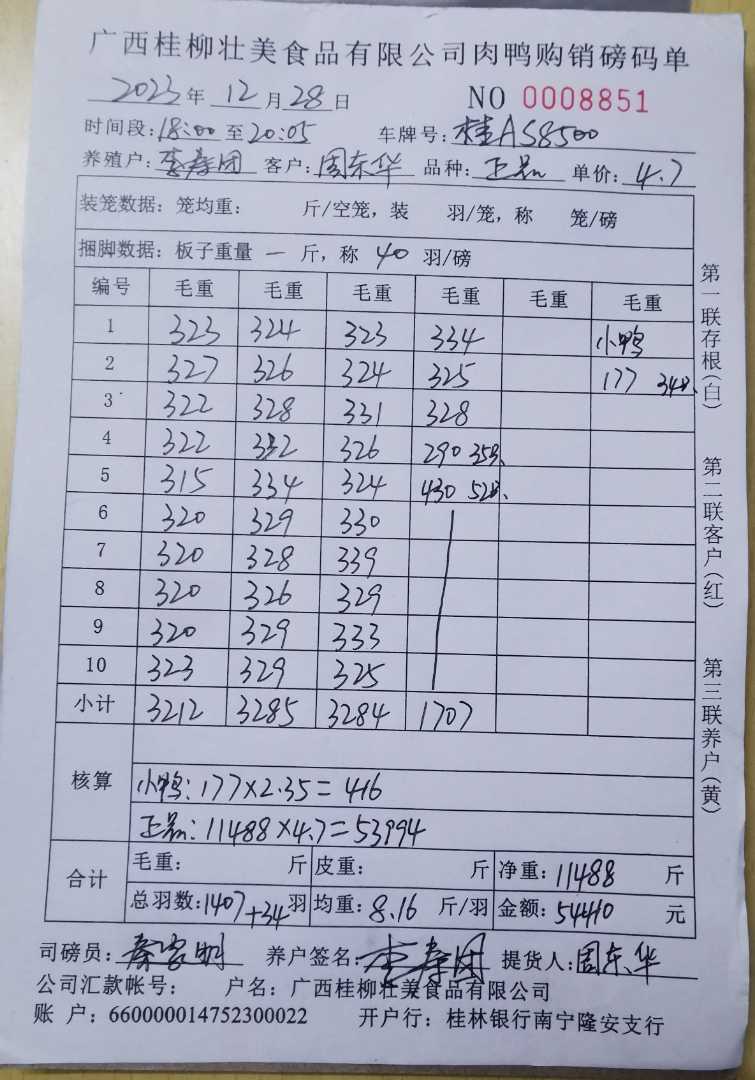 广西桂柳壮美食品有限公司肉鸭购销磅码单
2023年 12月28日 NO 0008851
时间段:18:00至20:05 车牌号:桂AS8500
养殖户:李春团 客户:周东华 品种:正品 单价:4.7
装笼数据:笼均重: 斤/空笼,装 羽/笼,称 笼/磅
捆脚数据:板子重量 一 斤,称 40 羽/磅
编号 毛重 毛重 毛重 毛重 毛重 毛重
1 323 324 323 334 小鸭
2 327 326 324 325 177 34只
3 322 328 331 328
4 322 332 326 290 35只
5 315 334 324 430 52只
6 320 329 330
7 320 328 339
8 320 326 329
9 320 329 333
10 323 329 325
小计 3212 3285 3284 1707
核算
小鸭:177×2.35=416
正品:11488×4.7=53994
合计 毛重: 斤 皮重: 斤 净重:11488 斤
总羽数:1407+34羽 均重:8.16 斤/羽 金额:54410 元
司磅员: 养户签名:李春团 提货人:周东华
公司汇款帐号: 户名:广西桂柳壮美食品有限公司
账 户:660000014752300022 开户行:桂林银行南宁隆安支行
第一联存根(白)
第二联客户(红)
第三联养户(黄)